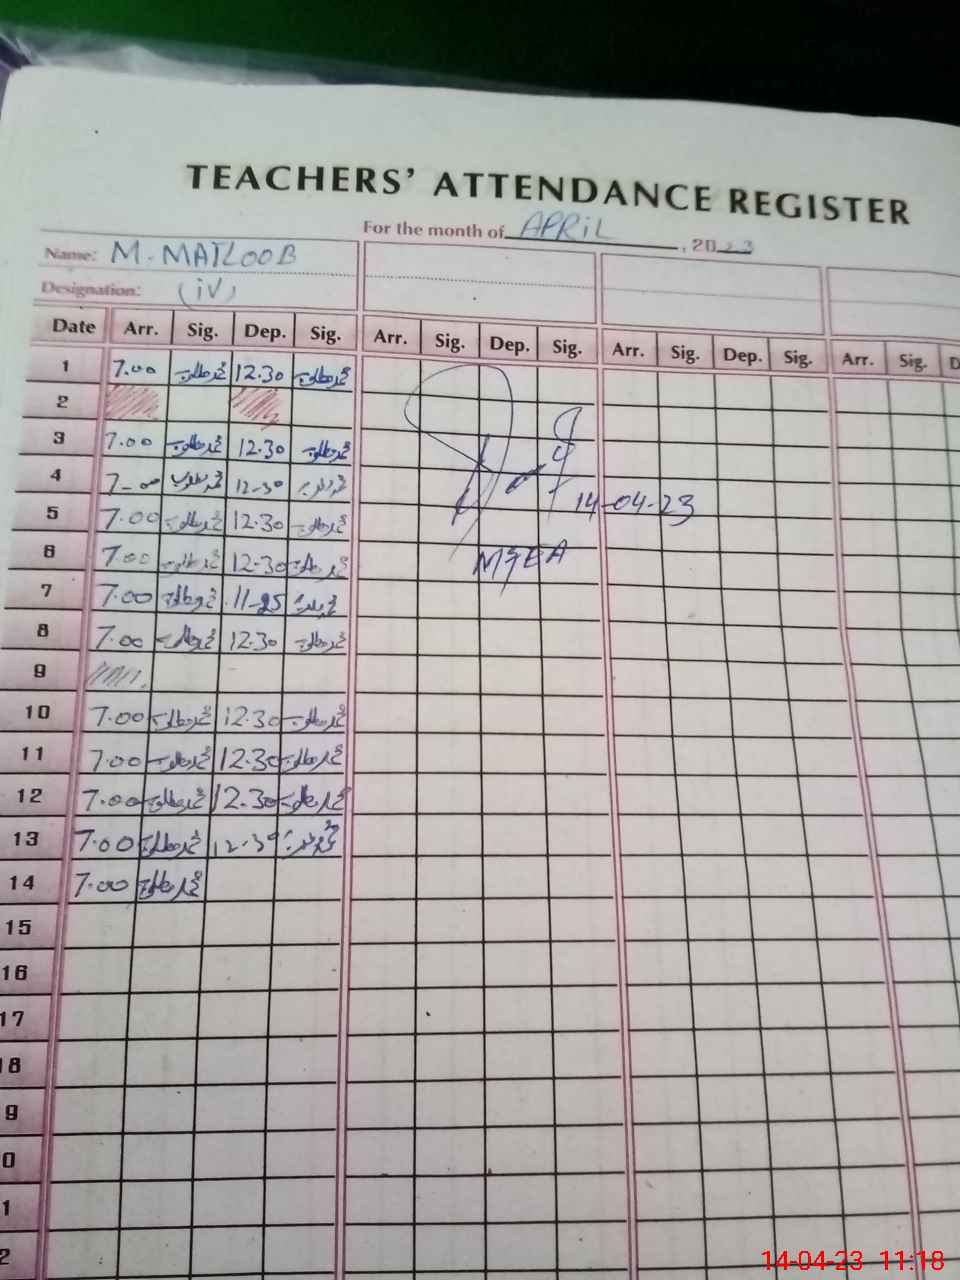 TEACHERS' ATTENDANCE REGISTER
For the month of APRIL, 2023
Name: M. MATLOOB
Designation: (iv)
Date Arr. Sig. Dep. Sig. Arr. Sig. Dep. Sig. Arr. Sig. Dep. Sig. Arr. Sig. D
1 7.00 محمد مطلوب 12.30 محمد مطلوب
2
3 7.00 محمد مطلوب 12.30 محمد مطلوب
4 7-00 محمد مطلوب 12-30
5 7.00 محمد مطلوب 12.30 محمد مطلوب
14-04-23
6 7.00 محمد مطلوب 12.30 محمد مطلوب
MFEA
7 7.00 محمد مطلوب 11-25
8 7.00 محمد مطلوب 12.30 محمد مطلوب
9
10 7.00 محمد مطلوب 12.30 محمد مطلوب
11 7.00 محمد مطلوب 12.30 محمد مطلوب
12 7.00 محمد مطلوب 12.30 محمد مطلوب
13 7.00 محمد مطلوب 12.30
14 7.00 محمد مطلوب
15
16
17
18
9
0
1
2
14-04-23 11:18